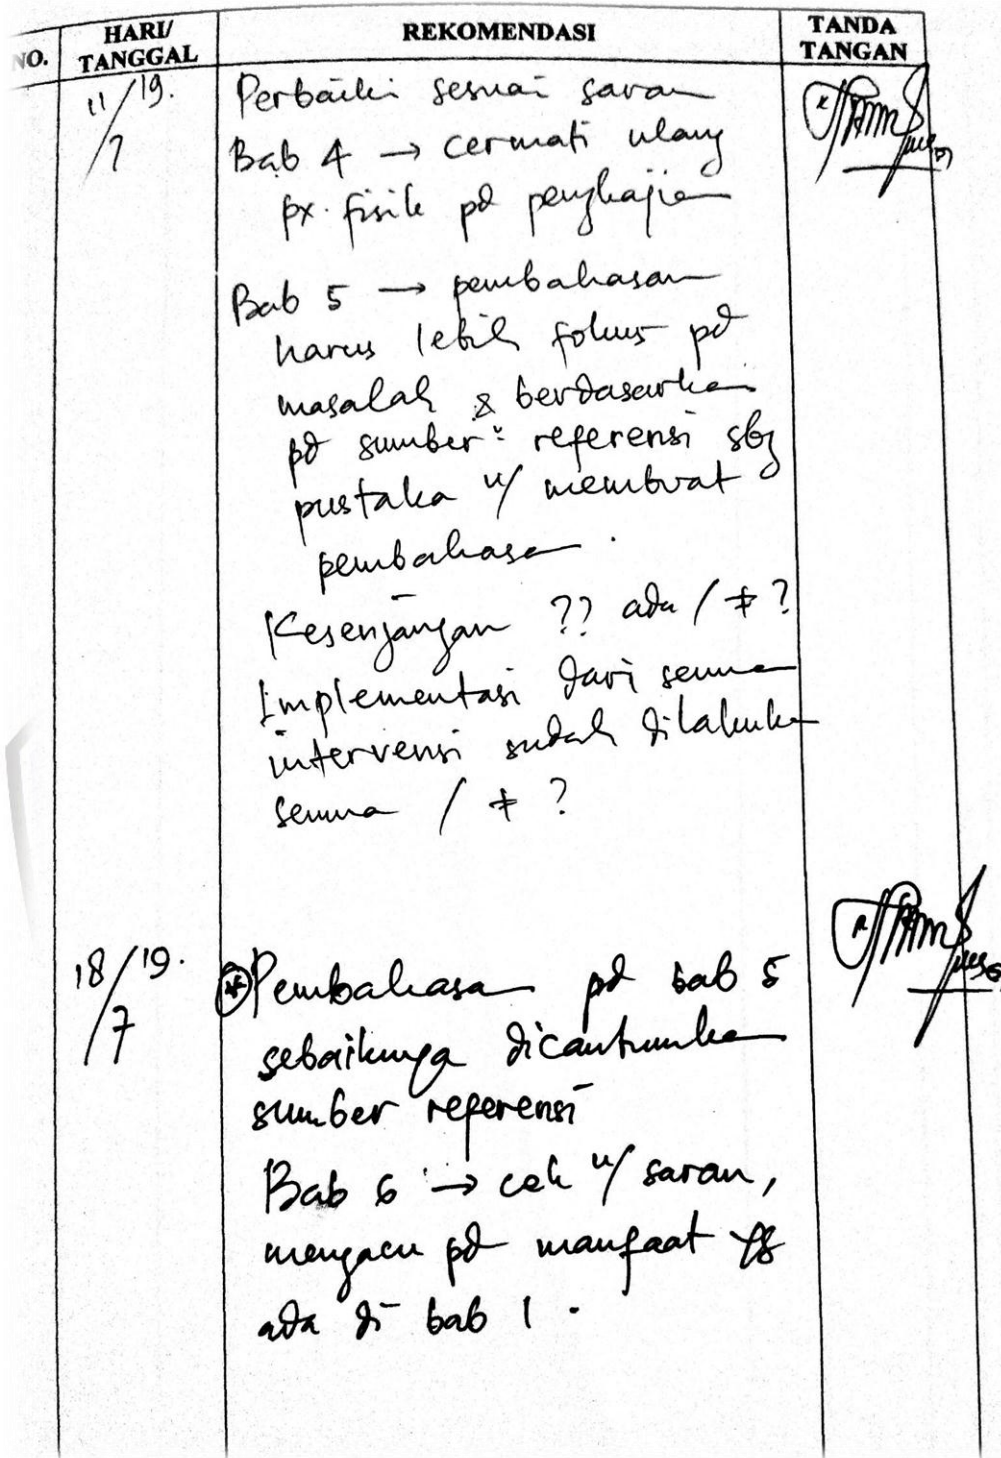 NO.
HARI/
TANGGAL
REKOMENDASI
TANDA
TANGAN
11/7 '19.
Perbaiki sesuai saran
Bab 4 → cermati ulang
px. fisik pd pengkajian
Bab 5 → pembahasan
harus lebih fokus pd
masalah & berdasarkan
pd sumber² referensi sbg
pustaka u/ membuat
pembahasan.
Kesenjangan ?? ada / ≠ ?
Implementasi dari semua
intervensi sudah dilakukan
semua / ≠ ?
18/7 '19.
* Pembahasan pd bab 5
sebaiknya dicantumkan
sumber referensi
Bab 6 → cek u/ saran,
mengacu pd manfaat yg
ada di bab 1.